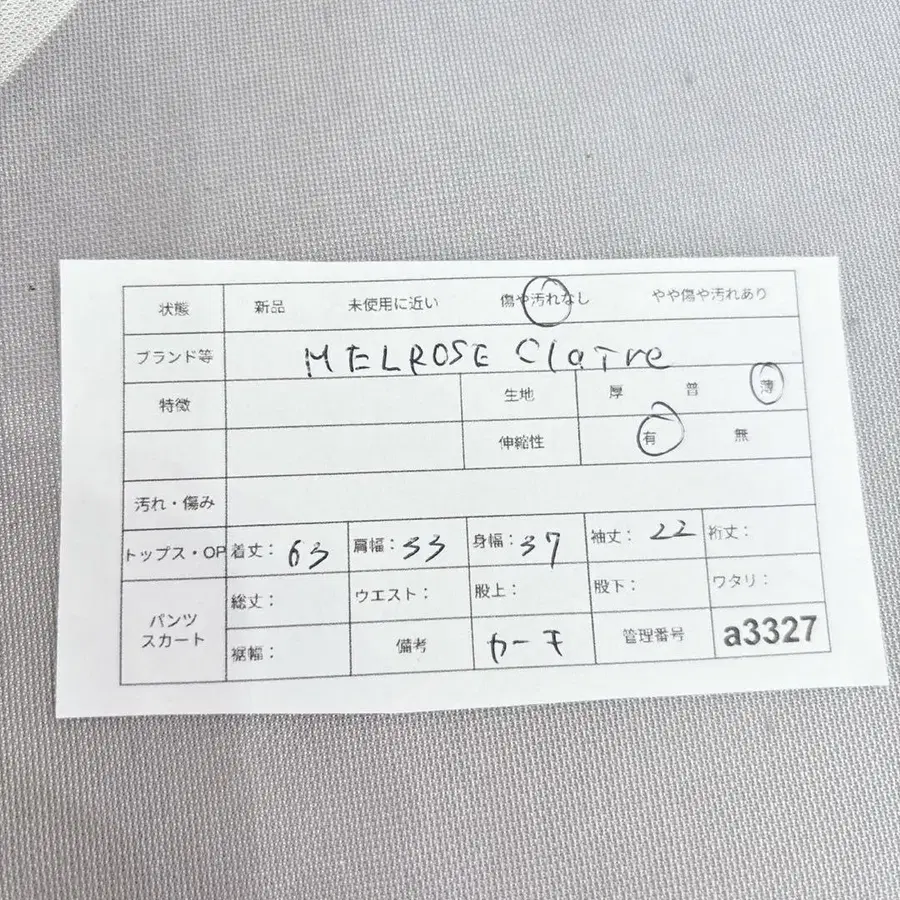 状態 新品 未使用に近い 傷や汚れなし やや傷や汚れあり
ブランド等 MELROSE Claire
特徴 生地 厚 普 薄
伸縮性 有 無
汚れ・傷み
トップス・OP 着丈: 63 肩幅: 33 身幅: 37 袖丈: 22 裄丈:
パンツ スカート 総丈: ウエスト: 股上: 股下: ワタリ:
裾幅: 備考 カーキ 管理番号 a3327